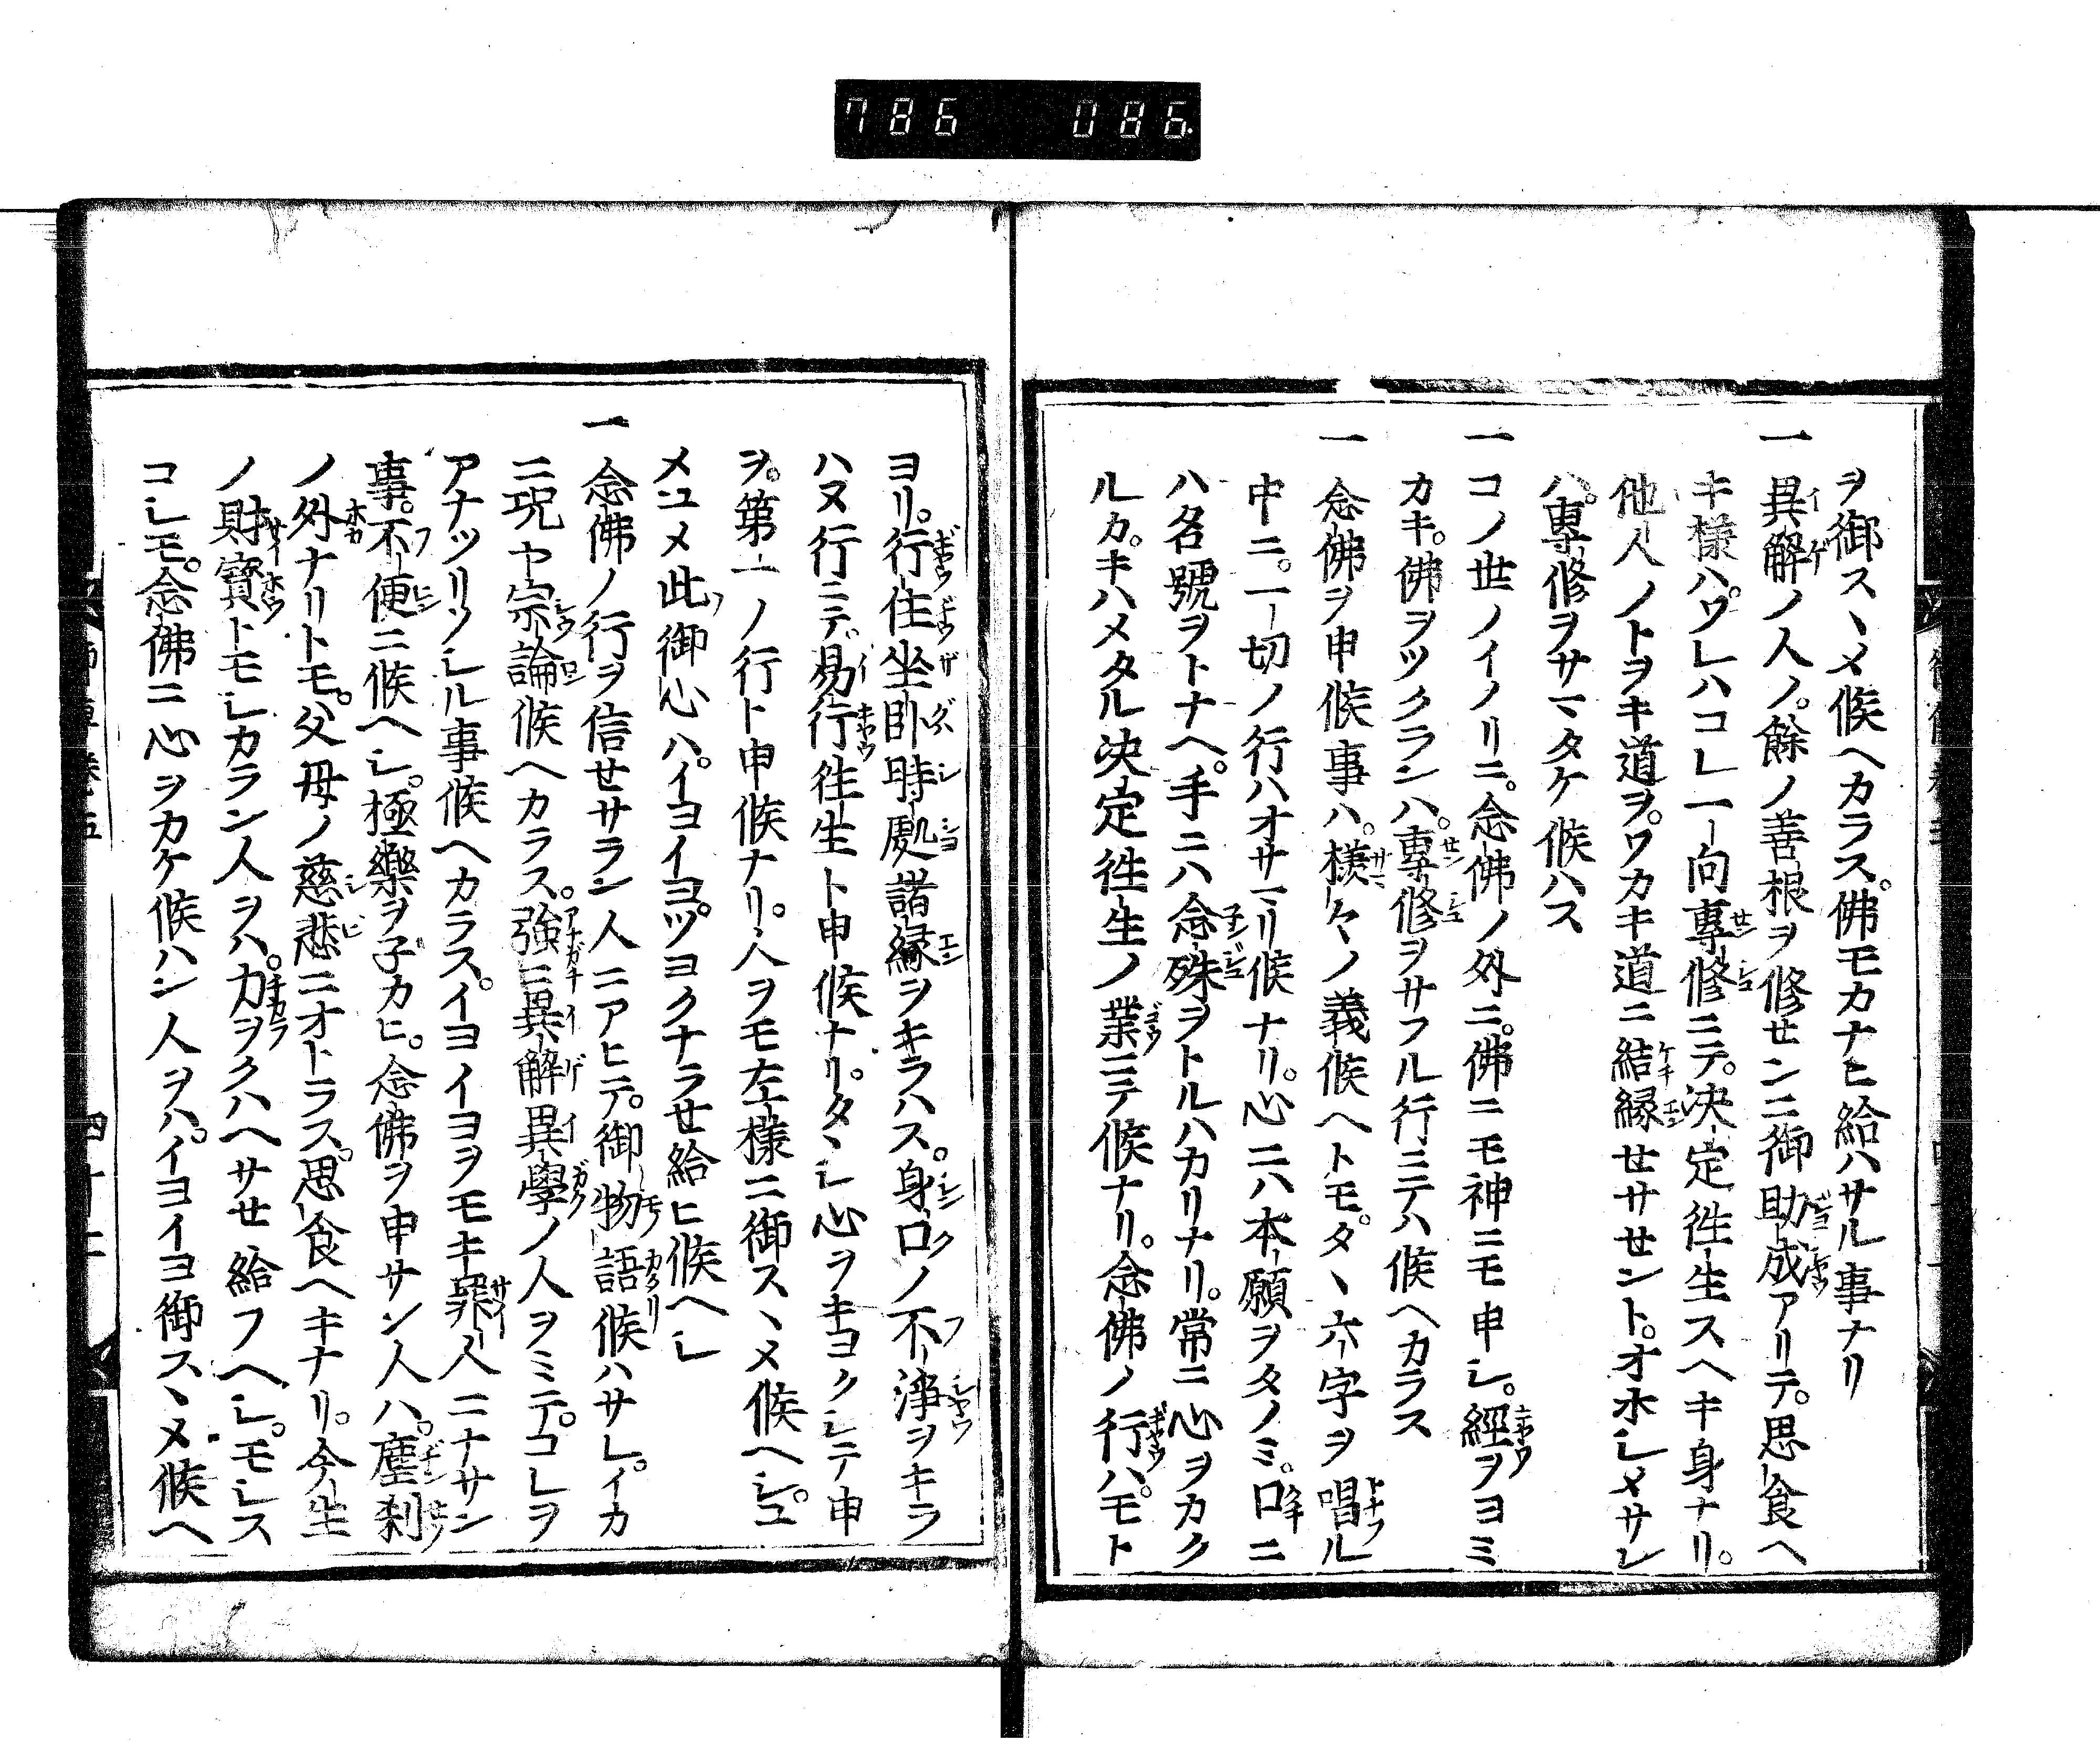 786 086.
ヲ御スヽメ候ヘカラス。佛モカナヒ給ハサル事ナリ
一異解ノ人ノ。餘ノ善根ヲ修センニ御助成アリテ。思食ヘ
キ様ハ。ワレハコレ一向專修ニテ。決定徃生スヘキ身ナリ。
他人ノトヲキ道ヲ。ワカキ道ニ結縁セサセント。オホシメサレ
ハ。專修ヲサマタケ候ハス
一コノ世ノイノリニ。念佛ノ外ニ。佛ニモ神ニモ申シ。經ヲヨミ
カキ。佛ヲツクランハ。專修ヲサフル行ニテハ候ヘカラス
一念佛ヲ申候事ハ。樣々ノ義候ヘトモ。タヽ六字ヲ唱ル
中ニ。一切ノ行ハオサマリ候ナリ。心ニハ本願ヲタノミ。口ニ
ハ名號ヲトナヘ。手ニハ念殊ヲトルハカリナリ。常ニ心ヲカク
ルカ。キハメタル決定徃生ノ業ニテ候ナリ。念佛ノ行ハ。モト
ヨリ。行住坐卧時處諸縁ヲキラハス。身口ノ不淨ヲキラ
ハヌ行ニテ。易行徃生ト申候ナリ。タヽシ心ヲキヨクシテ申
ヲ。第一ノ行ト申候ナリ。人ヲモ左樣ニ御スヽメ候ヘシ。ユ
メユメ此御心ハ。イヨイヨ。ツヨクナラセ給ヒ候ヘシ
一念佛ノ行ヲ信セサラン人ニアヒテ。御物語候ハサレ。イカ
ニ况ヤ宗論候ヘカラス。強ニ異解異學ノ人ヲミテ。コレヲ
アナツリソシル事候ヘカラス。イヨイヨヲモキ罪人ニナサン
事。不便ニ候ヘシ。極樂ヲ子カヒ。念佛ヲ申サン人ハ。塵刹
ノ外ナリトモ。父母ノ慈悲ニオトラス。思食ヘキナリ。今生
ノ財寳トモシカラン人ヲハ。力ヲクハヘサセ給フヘシ。モシス
コシモ。念佛ニ心ヲカケ候ハン人ヲハ。イヨイヨ御スヽメ候ヘ
四十二